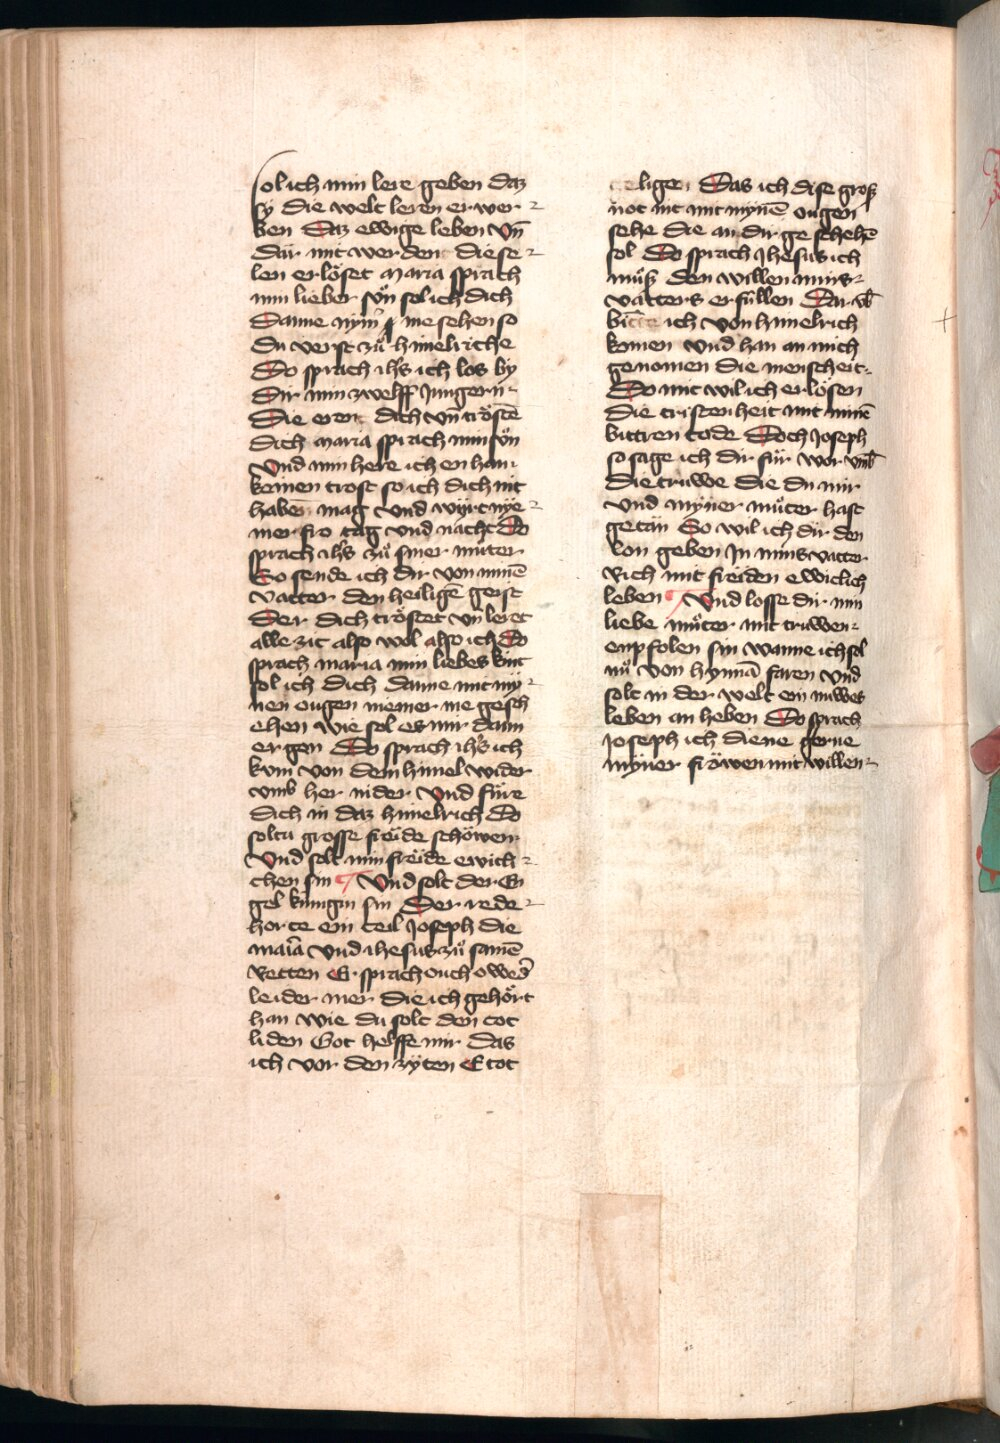 sol ich min lere geben daz
sy die welt leren erwer-
ben Daz ewige leben vn̄
dar mit werdent diese-
len erlöset maria sprach
min lieber sůn sol ich dich
Danne nÿm̄ me sehen so
du verst zů himelriche
Do sprach ih̄s ich los by
Dir min zwelff Jungern
Die eren dich vn̄ tröstē
dich maria sprach min sůn
Vnd min here ich en han
keinen trost so ich dich nit
haben mag vnd wÿrt nÿe-
mer fro tag vnd nacht Do
sprach ih̄s zů siner můter
So sende ich dir von minē
vatter den heiligē geist
Der dich tröstet vn̄ leret
alle zit also wol also ich Do
sprach maria min liebes kint
sol ich dich danne mit mÿ-
nen ougen niemer me gesch
ehen wie sol es mir dann
ergen Do sprach ih̄s ich
kum von dem himel wider
vmb her nider vnd füre
dich in daz himelrich Do
soltu grosse freide schöwen
Vnd solt min freide ewich-
chen sin ¶ Vnd solt der En
gel kunigin sin Der rede-
horte ein teil Joseph die
maīa vnd ihesus zů samē
Retten Er sprach ouch owe d̄
leider mer die ich gehört
han wie du solt den tot
liden Got helffe mir das
ich vor den zÿten E tot
lige Das ich dise groß
not nit mit mynē ougen
sehe die an dir geschehē
sol Do sprach Jhesus ich
můß den willen mins-
vatters erfüllen Dar vb̄
ich von himelrich
komen vnd han an mich
genomen die menscheit-
Do mit wil ich erlösen
die cristenheit mit minē
bittren tode Doch Joseph
so sage ich dir für wor vmb̄
die truwe die du mir
vnd mÿner můter hast
getan So wil ich dir den
lon geben In mins vatter
Rich mit freiden ewiclich
leben ¶ Vnd losse dir min
liebe můter mit truwen-
enpfolen sin wanne ich sol
nů von hynnā faren vnd
solt in der welt ein nuwes
leben an heben Do sprach
Joseph ich diene gerne
mÿner fröwen mit willen-